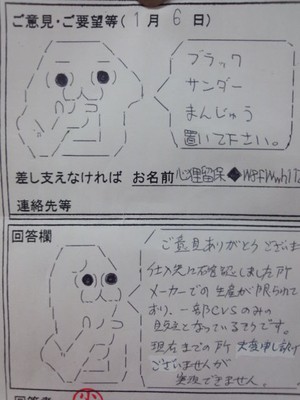 ご意見・ご要望等(1月6日)
ブラック
サンダー
まんじゅう
置いて下さい。
差し支えなければ お名前 心理留保◆
連絡先等
回答欄
ご意見ありがとうございま
仕入先に確認しました所
メーカーでの生産が限られて
おり、一部CVSのみの
販売となっているそうです。
現在までの所 大変申し訳
ございませんが
実現できません。
小